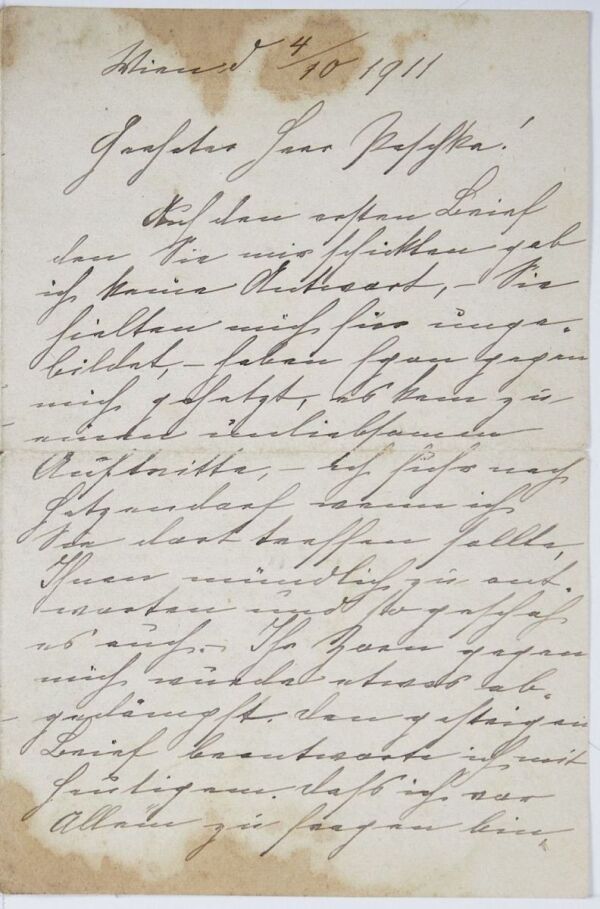 Wien d 4/10 1911
Geehrter Herr Peschka!
Auf den ersten Brief
den Sie mir schickten gab
ich keine Antwort, – Sie
hielten mich für unge-
bildet, – haben Egon gegen
mich gehetzt, es kam zu
einen unliebsamen
Auftritte, – ich fuhr nach
Hetzendorf wenn ich
Sie dort treffen sollte,
Ihnen mündlich zu ant-
worten und so geschah
es auch. – Ihr Zorn gegen
mich wurde etwas ab-
gedämpft. Den gestrigen
Brief beantworte ich mit
heutigem. dass ich vor
Allem zu fragen bin